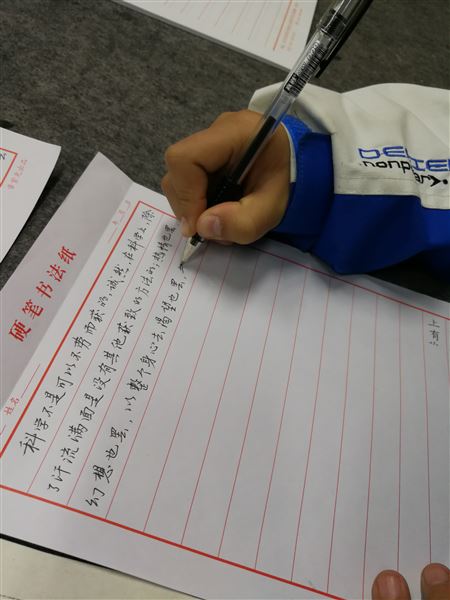 硬笔书法纸
姓名
科学不是可以不劳而获的,诚然,在科学上,除
了汗流满面是没有其他获致的方法的,热情也罢,
幻想也罢,以整个身心去渴望也罢,